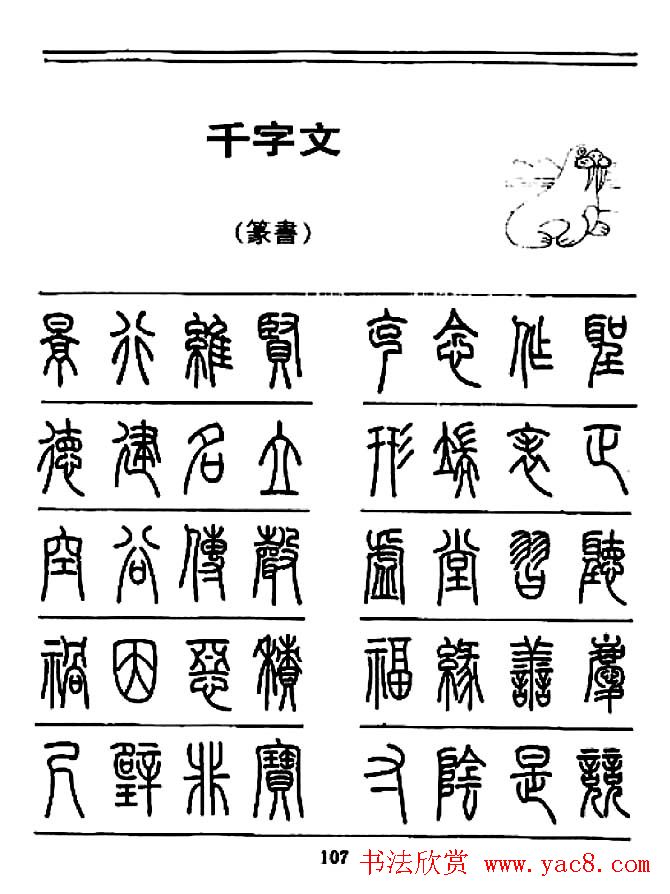 千字文
(篆書)
景行維賢 克念作聖
德建名立 形端表正
空谷傳聲 虛堂習聽
禍因惡積 福緣善慶
尺璧非寶 寸陰是競
107
书法欣赏 www.yac8.com